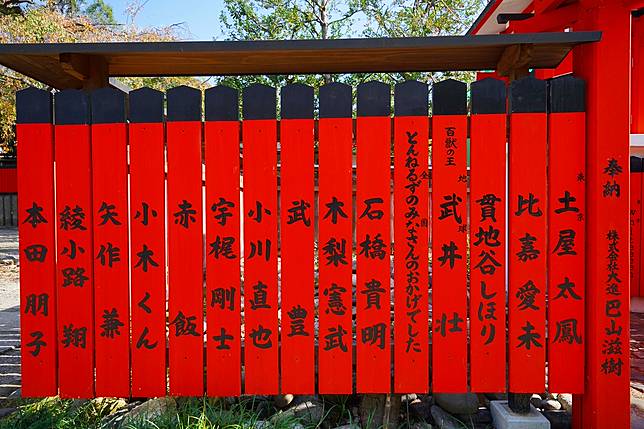 奉納
株式会社大進 巴山滋樹
東京
土屋太鳳
比嘉愛未
貫地谷しほり
百獣の王
地球
武井壮
全国
とんねるずのみなさんのおかげでした
石橋貴明
木梨憲武
武豊
小川直也
宇梶剛士
赤飯
小木くん
矢作兼
綾小路翔
本田朋子